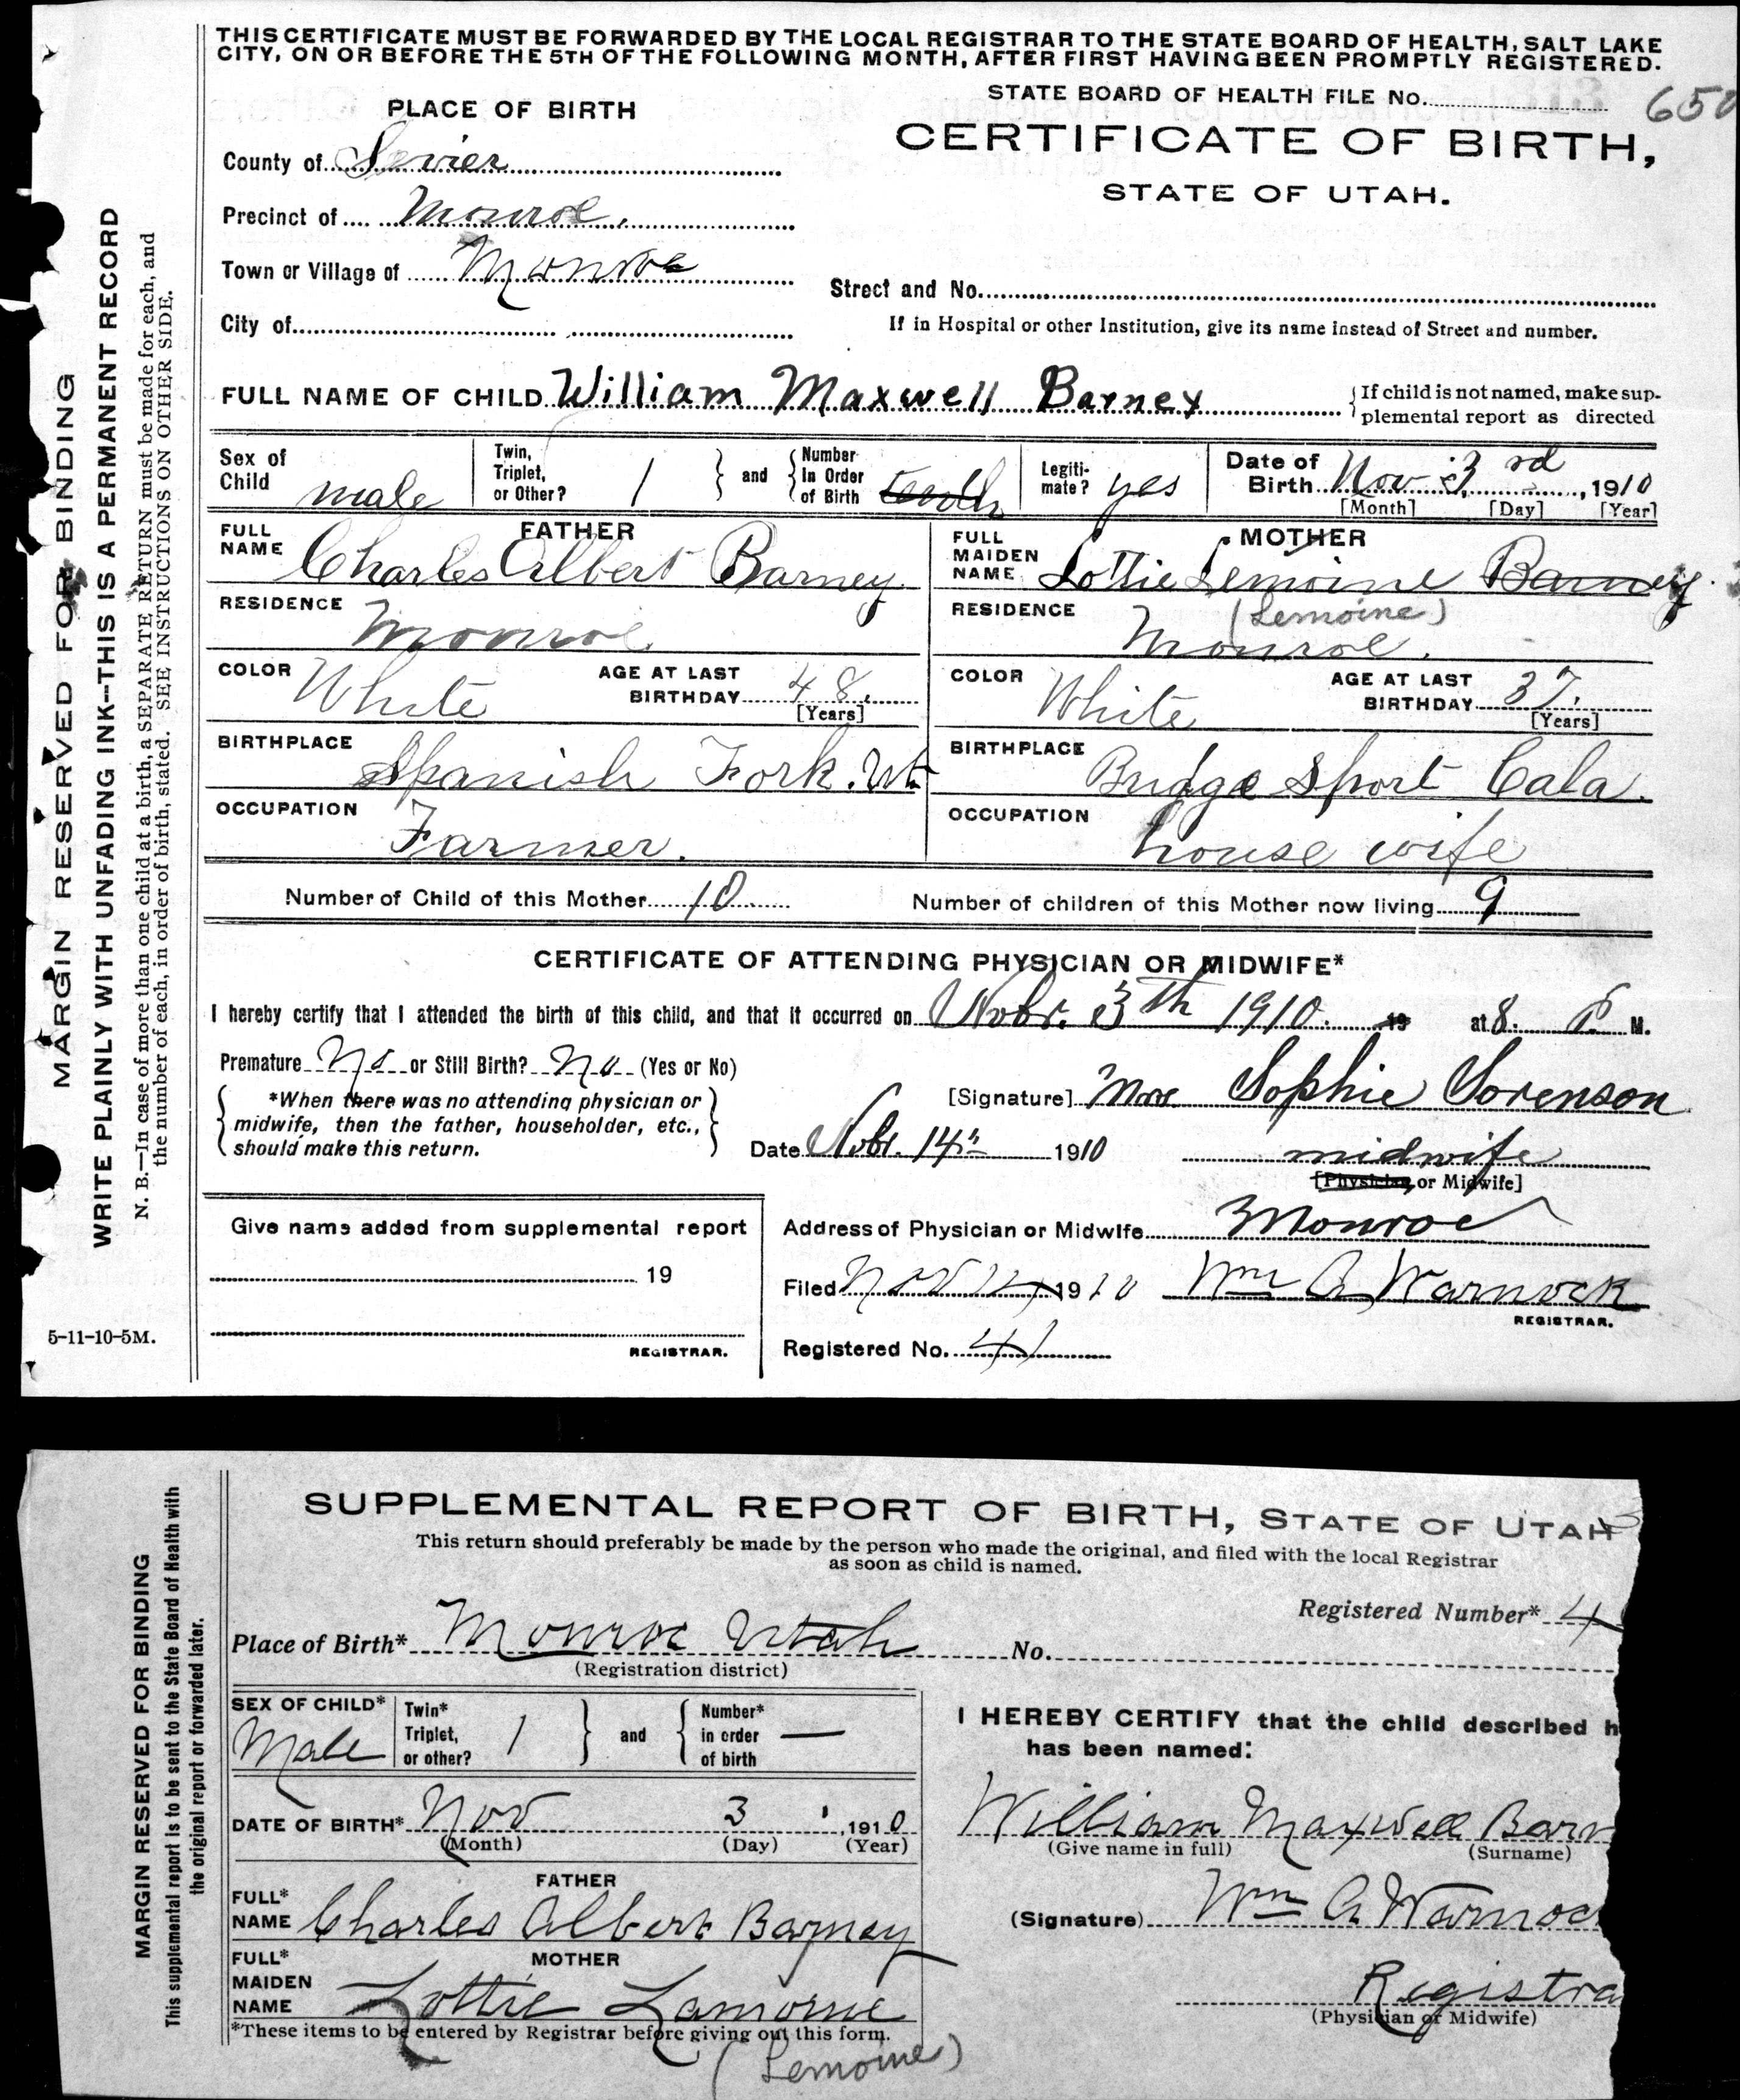 THIS CERTIFICATE MUST BE FORWARDED BY THE LOCAL REGISTRAR TO THE STATE BOARD OF HEALTH, SALT LAKE
CITY, ON OR BEFORE THE 5TH OF THE FOLLOWING MONTH, AFTER FIRST HAVING BEEN PROMPTLY REGISTERED.
STATE BOARD OF HEALTH FILE No. 650
PLACE OF BIRTH
CERTIFICATE OF BIRTH,
STATE OF UTAH.
County of Sevier
Precinct of Monroe.
Town or Village of Monroe
Street and No.
City of
If in Hospital or other Institution, give its name instead of Street and number.
FULL NAME OF CHILD William Maxwell Barney
{If child is not named, make sup-
plemental report as directed
Sex of Child male
Twin, Triplet, or Other? 1 } and { Number In Order of Birth tenth
Legiti-mate? yes
Date of Birth Nov 3 rd, 1910
[Month] [Day] [Year]
FATHER
FULL NAME Charles Albert Barney
RESIDENCE Monroe
COLOR White AGE AT LAST BIRTHDAY 48. [Years]
BIRTHPLACE Spanish Fork. Ut
OCCUPATION Farmer.
MOTHER
FULL MAIDEN NAME Lottie Lemoine Barney
(Lemoine)
RESIDENCE Monroe.
COLOR White AGE AT LAST BIRTHDAY 37. [Years]
BIRTHPLACE Bridge Sport Cala.
OCCUPATION house wife
Number of Child of this Mother 10 Number of children of this Mother now living 9
CERTIFICATE OF ATTENDING PHYSICIAN OR MIDWIFE*
I hereby certify that I attended the birth of this child, and that it occurred on Nobr. 3th 1910. 19 at 8. P. M.
Premature No or Still Birth? No (Yes or No)
{ *When there was no attending physician or
midwife, then the father, householder, etc.,
should make this return. }
[Signature] Mrs Sophie Sorenson
Date Nobr. 14th 1910 midwife
[Physician, or Midwife]
Give name added from supplemental report
19
REGISTRAR.
Address of Physician or Midwife Monroe
Filed Nov 14 1910 Wm A Warnock
REGISTRAR.
Registered No. 41
MARGIN RESERVED FOR BINDING
WRITE PLAINLY WITH UNFADING INK--THIS IS A PERMANENT RECORD
N. B.—In case of more than one child at a birth, a SEPARATE RETURN must be made for each, and
the number of each, in order of birth, stated. SEE INSTRUCTIONS ON OTHER SIDE.
5-11-10-5M.
SUPPLEMENTAL REPORT OF BIRTH, STATE OF UTAH
This return should preferably be made by the person who made the original, and filed with the local Registrar
as soon as child is named.
Registered Number* 4
Place of Birth* Monroe Utah No.
(Registration district)
SEX OF CHILD* Male
Twin* Triplet, or other? 1 } and { Number* in order of birth —
DATE OF BIRTH* Nov 3, 1910
(Month) (Day) (Year)
FATHER
FULL* NAME Charles Albert Barney
MOTHER
FULL* MAIDEN NAME Lottie Lamoine
*These items to be entered by Registrar before giving out this form.
(Lemoine)
I HEREBY CERTIFY that the child described h
has been named:
William Maxwell Barn
(Give name in full) (Surname)
(Signature) Wm A Warnoc
Registra
(Physician or Midwife)
MARGIN RESERVED FOR BINDING
This supplemental report is to be sent to the State Board of Health with
the original report or forwarded later.